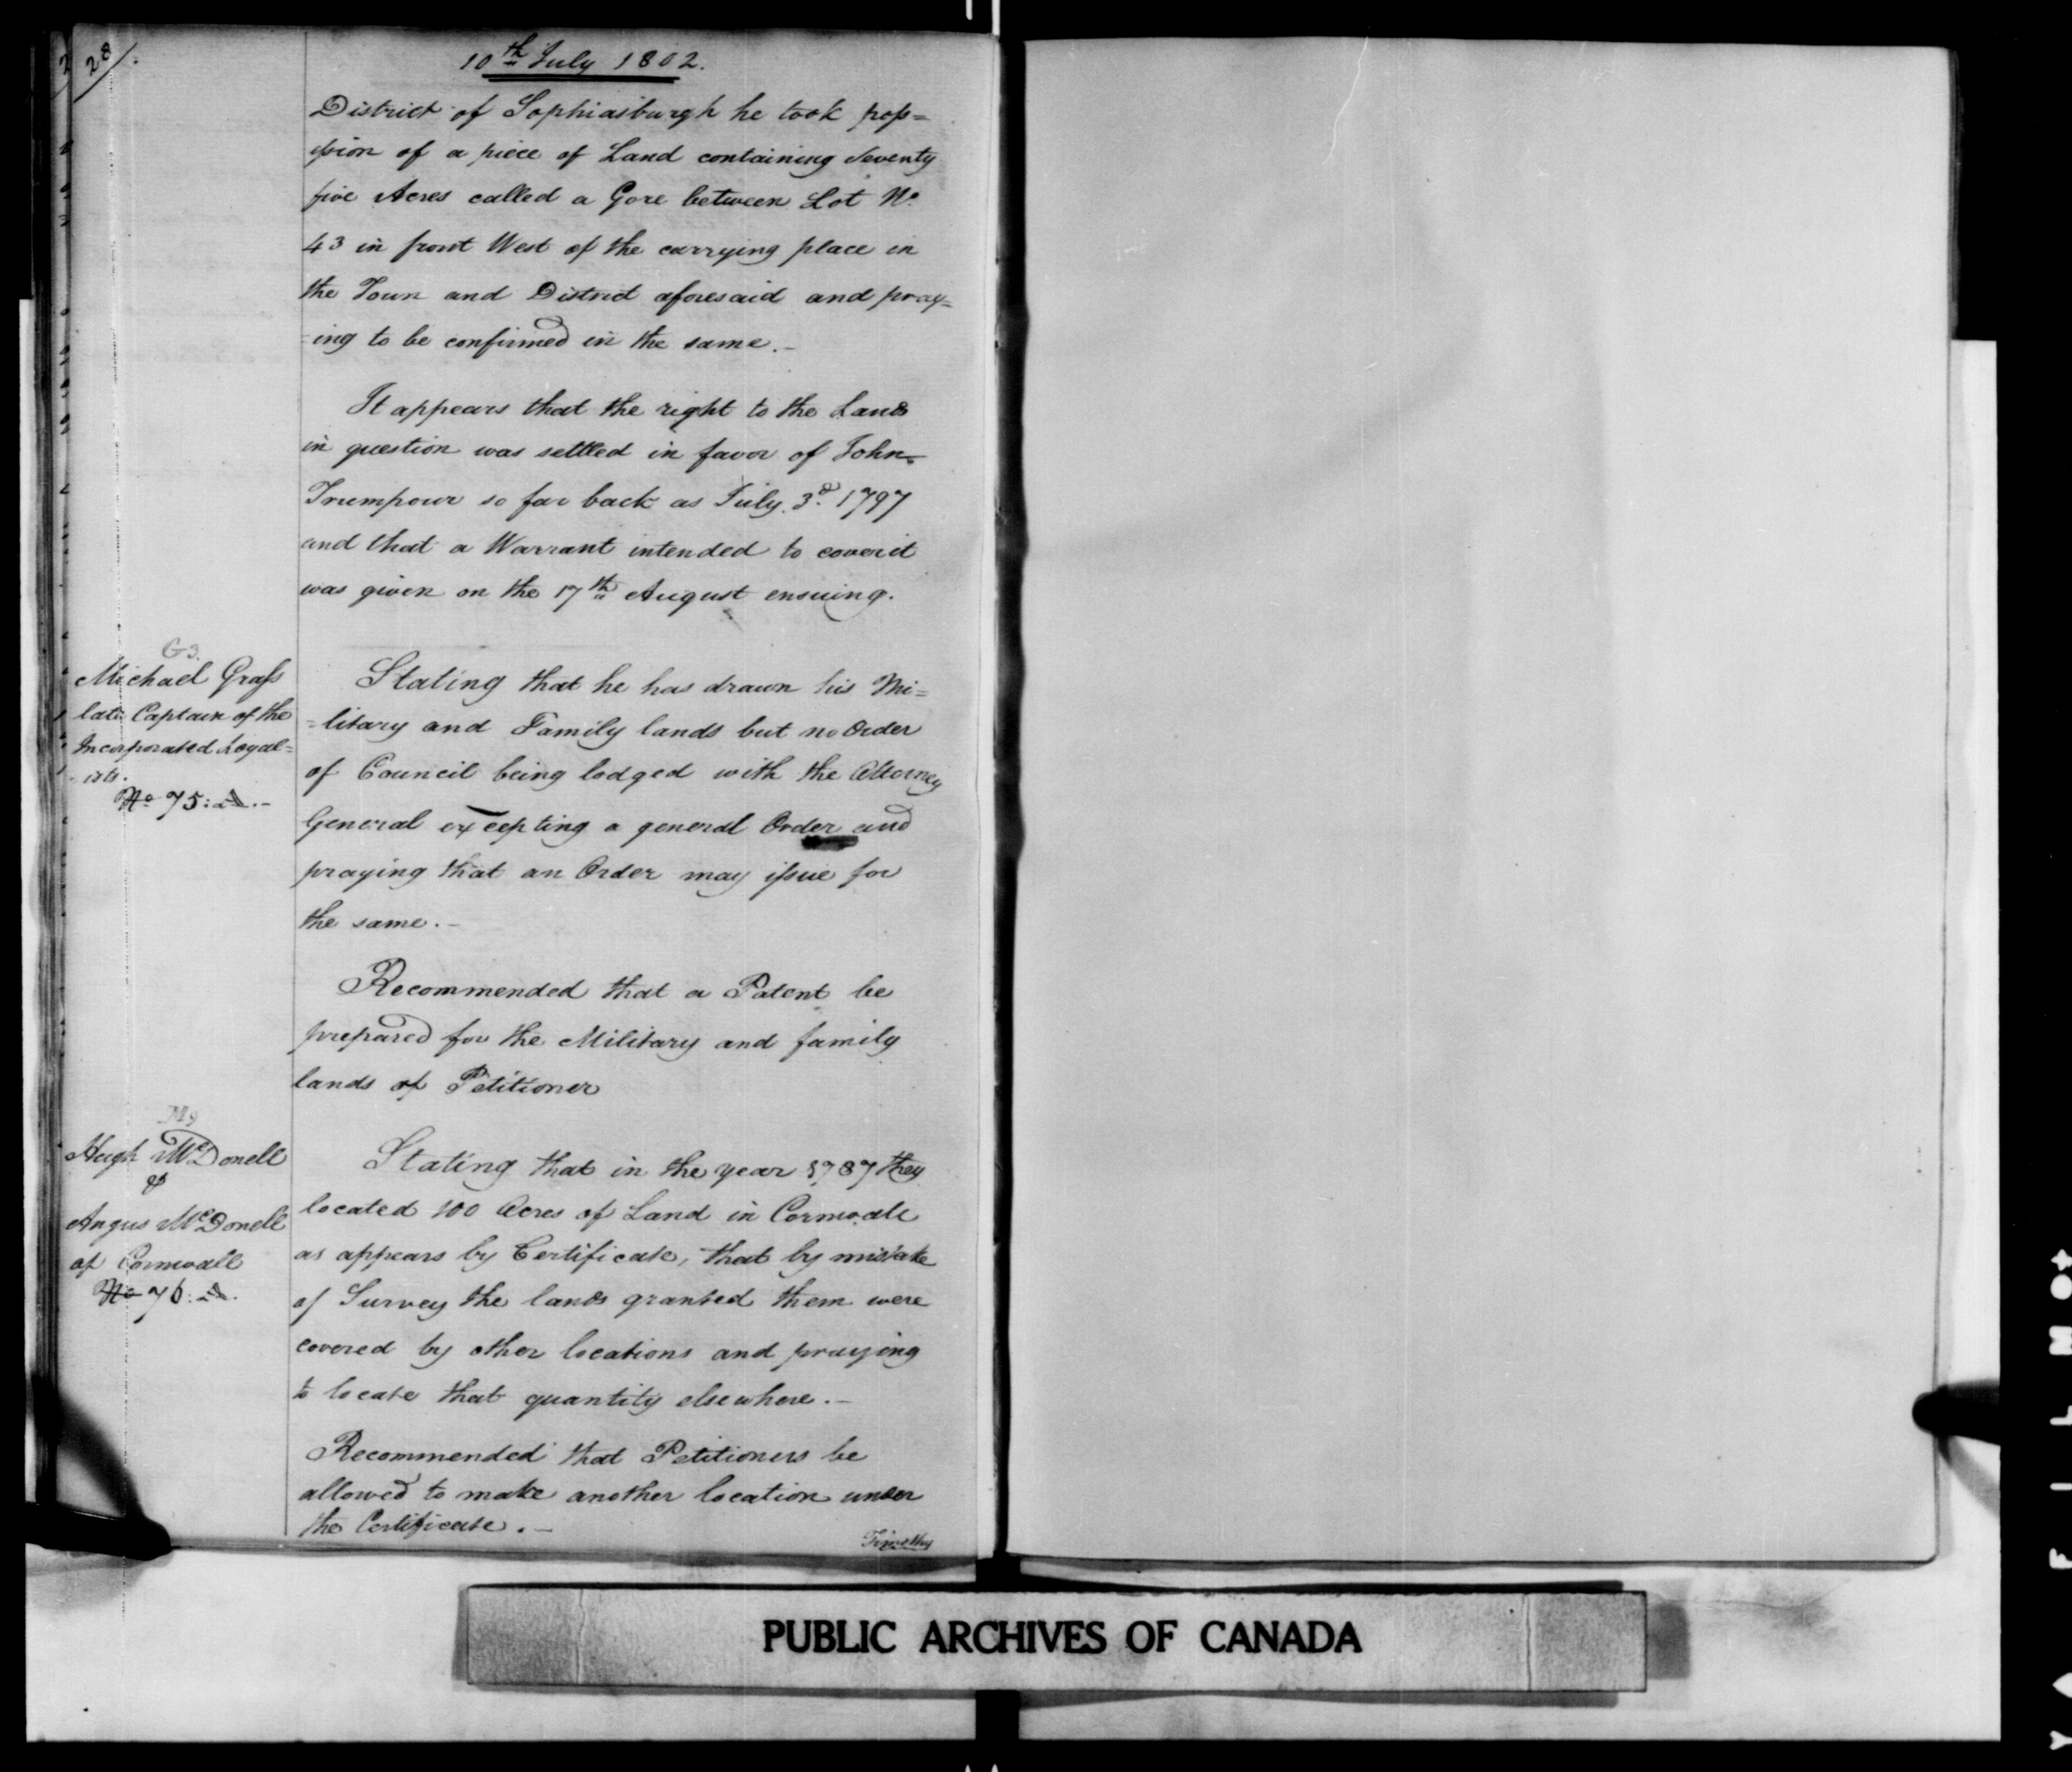 28
10th July 1802.
District of Sophiasburgh he took pos=
ssion of a piece of Land containing Seventy
five Acres called a Gore between Lot No
43 in front West of the carrying place in
the Town and District aforesaid and pray=
-ing to be confirmed in the same.-
It appears that the right to the Lands
in question was settled in favor of John
Trumpour so far back as July 3d. 1797
and that a Warrant intended to cover it
was given on the 17th August ensuing.
G 3.
Michael Grass
late Captain of the
Incorporated Loyal=
-ists.
No 75:
Stating that he has drawn his Mi=
=litary and Family lands but no Order
of Council being lodged with the Attorney
General excepting a general Order and
praying that an Order may issue for
the same.-
Recommended that a Patent be
prepared for the Military and family
lands of Petitioner
M 9
Hugh McDonell
&
Angus McDonell
of Cornwall
No 76:
Stating that in the year 1787 they
located 100 Acres of Land in Cornwall
as appears by Certificate, that by mistake
of Survey the lands granted them were
covered by other locations and praying
to locate that quantity elsewhere.-
Recommended that Petitioners be
allowed to make another location under
the Certificate.-
Timothy
PUBLIC ARCHIVES OF CANADA